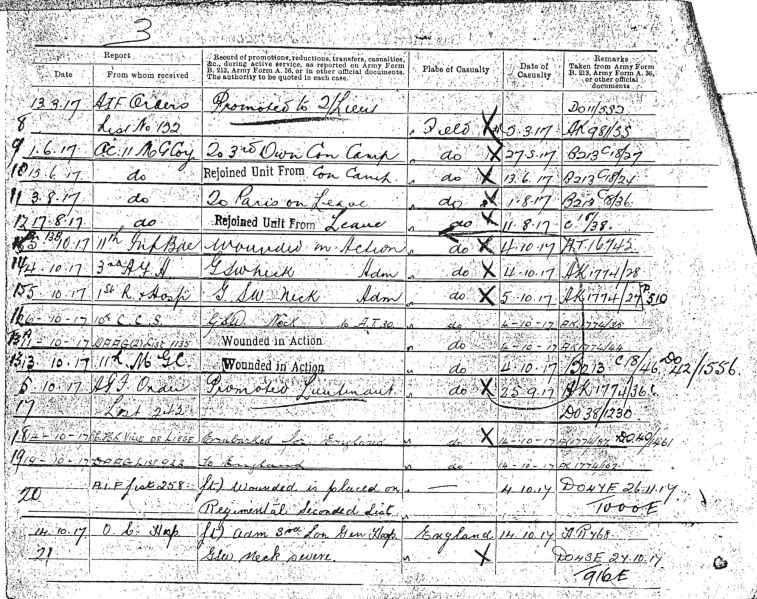 3
Report
Date
From whom received
Record of promotions, reductions, transfers, casualties,
&c., during active service, as reported on Army Form
B. 213, Army Form A. 36, or in other official documents.
The authority to be quoted in each case.
Place of Casualty
Date of
Casualty
Remarks
Taken from Army Form
B. 213, Army Form A. 36,
or other official
documents
13.3.17 AIF Orders Promoted to 2/Lieut DO 11/352
8 List No 132 Field X 5.3.17 AK 981/35
9 1.6.17 OC. 11 M G Coy To 3rd Divn Con Camp do X 27-5-17 B213 C18/27
10 13.6.17 do Rejoined Unit From Con Camp do X 13.6.17 B213 C18/24
11 3.8.17 do To Paris on Leave do X 1-8-17 B213 C8/36
12 17-8-17 do Rejoined Unit From Leave do X 11-8-17 /38.
10.17 11th Inf Bde Wounded in Action do X 4-10-17 AT 16745
14 4-10-17 3rd A F A GSW Neck Adm do X 4-10-17 AK 1774/28
15 5-10-17 1st R Hosp G. SW Neck Adm do X 5.10.17 AK 1774/27 P 510
16 6-10-17 10th C.C.S. GSW Neck to AT 30 do 4-10-17 AK 1774/35
13A -10-17 List 1135 Wounded in Action do 4-10-17 AK 1774/44
13 13 10-17 11th M.G.C. Wounded in Action do 4.10-17 B213 C18/46, DO 42/1556.
5 10.17 AIF Order Promoted Lieutenant do X 25.9.17 AK 1774/36
17 List 242 DO 38/1230
18 14-10-17 Ville de Liege Embarked for England do X 14-10-17 DO 40/461
19 19-10-17 DAAG List 922 To England do 14-10-17 AK 1774/
20 A.I.F List 258. (Lt) Wounded is placed on — 4.10.17 DO 47E 26.11.17
Regimental Seconded List. 1000E
14.10.17 O. C. Hosp (Lt) adm 3rd Lon Gen Hosp England 14.10.17 AR 468
21 GSW Neck severe. X DO 43E 27.10.17
916E